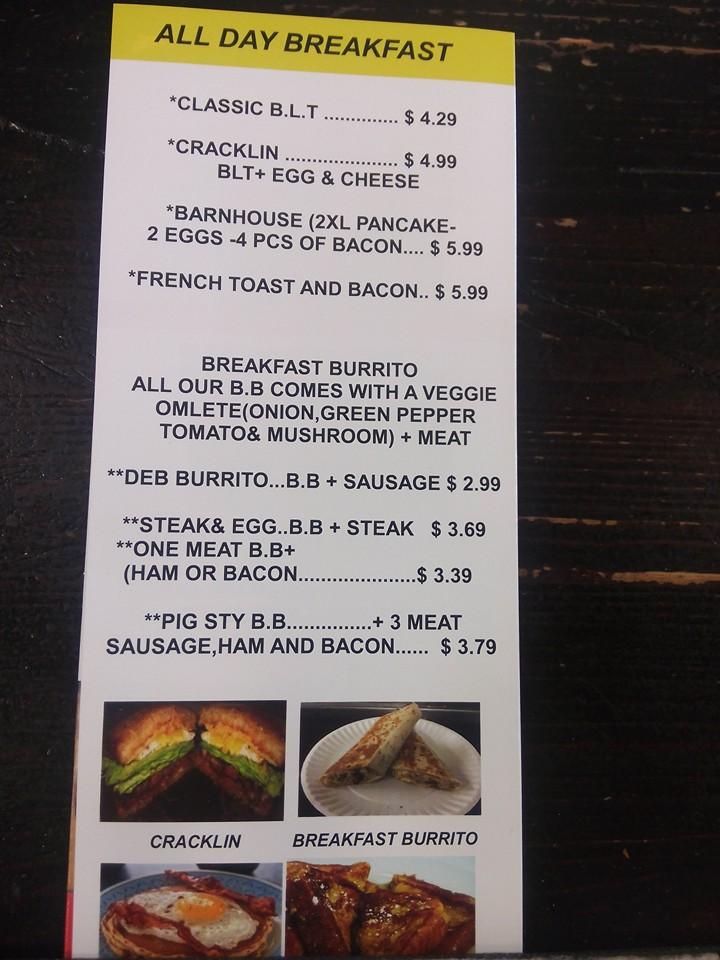 ALL DAY BREAKFAST
*CLASSIC B.L.T .............. $ 4.29
*CRACKLIN ..................... $ 4.99
BLT+ EGG & CHEESE
*BARNHOUSE (2XL PANCAKE-
2 EGGS -4 PCS OF BACON.... $ 5.99
*FRENCH TOAST AND BACON.. $ 5.99
BREAKFAST BURRITO
ALL OUR B.B COMES WITH A VEGGIE
OMLETE(ONION,GREEN PEPPER
TOMATO& MUSHROOM) + MEAT
**DEB BURRITO...B.B + SAUSAGE $ 2.99
**STEAK& EGG..B.B + STEAK $ 3.69
**ONE MEAT B.B+
(HAM OR BACON......................$ 3.39
**PIG STY B.B................+ 3 MEAT
SAUSAGE,HAM AND BACON...... $ 3.79
CRACKLIN
BREAKFAST BURRITO